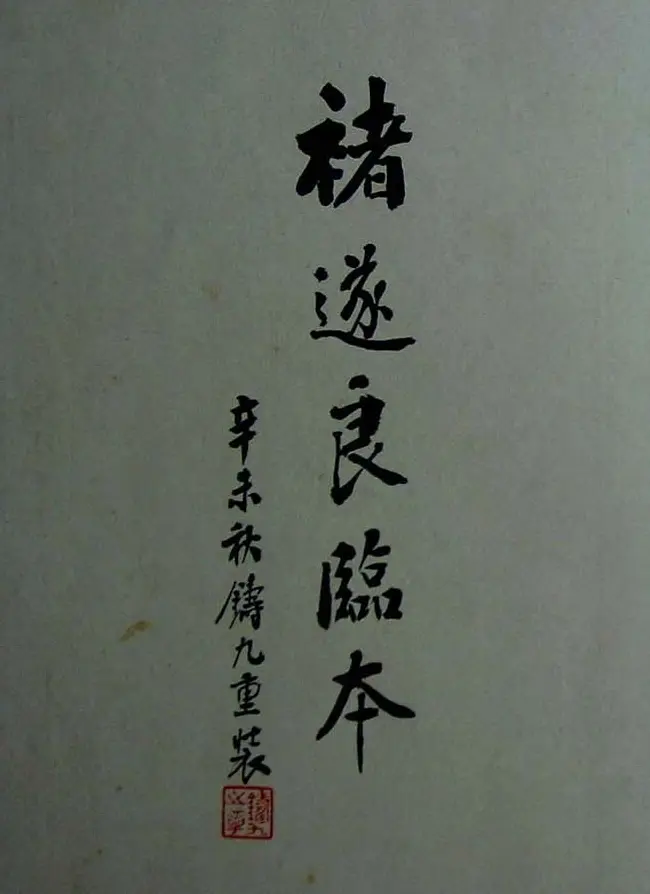 褚遂良臨本
辛未秋鑄九重裝